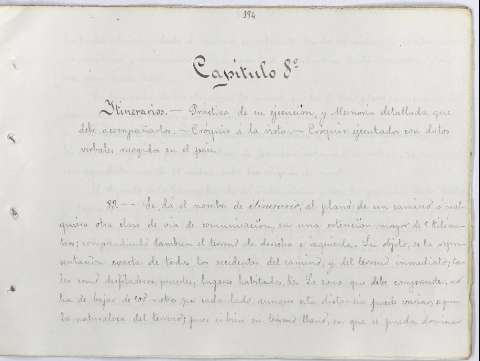 194
Capitulo 8º
Itinerarios. — Practica de su ejecucion, y Memoria detallada que
debe acompañarlos. — Cróquis á la vista — Cróquis ejecutados con datos
verbales recogidos en el pais.
89. — Se dá el nombre de itinerario, al plano de un camino ó cual-
quiera otra clase de via de comunicacion, en una estencion mayor de Kilome-
tros; comprendiendo tambien el terreno de derecha é izquierda. Su objeto, es la repre-
sentacion exacta de todos los accidentes del camino, y del terreno inmediato; ta-
les como desfiladeros, puentes, lugares habitados, &. La zona que debe comprender, no
ha de bajar de metros por cada lado, aunque esta distancia puede variar, segun
la naturaleza del terreno; pues si bien en terreno llano, en que se pueda domina